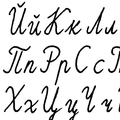 Й й К к Л л
П п Р р С с Т
Х х Ц ц Ч ч